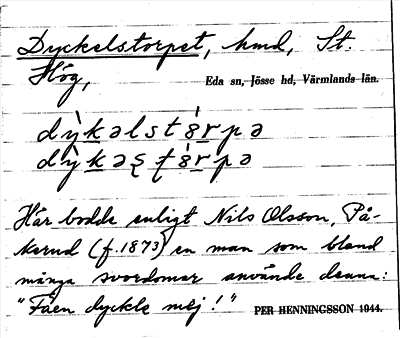 Dyckelstorpet, hmd, St.
Hög,
Eda sn, Jösse hd, Värmlands län.
dỳkəlstö́rpə
dỳkəʂʈö́rpə
Här bodde enligt Nils Olsson, På-
kerud (f. 1873) en man som bland
många svordomar använde denna:
"Fåen dyckle mej!"
PER HENNINGSSON 1944.